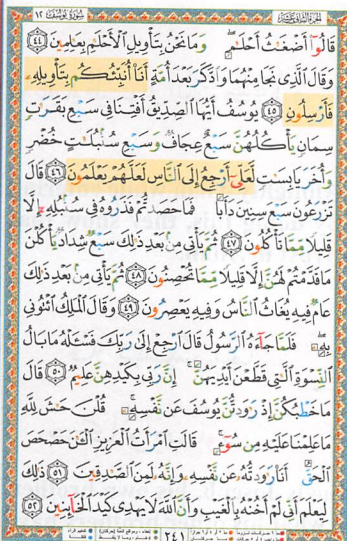 سورة يوسف ١٢
قَالُوٓا۟ أَضْغَـٰثُ أَحْلَـٰمٍ ۖ وَمَا نَحْنُ بِتَأْوِيلِ ٱلْأَحْلَـٰمِ بِعَـٰلِمِينَ ٤٤
وَقَالَ ٱلَّذِى نَجَا مِنْهُمَا وَٱدَّكَرَ بَعْدَ أُمَّةٍ أَنَا۠ أُنَبِّئُكُم بِتَأْوِيلِهِۦ
فَأَرْسِلُونِ ٤٥ يُوسُفُ أَيُّهَا ٱلصِّدِّيقُ أَفْتِنَا فِى سَبْعِ بَقَرَٰتٍ
سِمَانٍ يَأْكُلُهُنَّ سَبْعٌ عِجَافٌ وَسَبْعِ سُنۢبُلَـٰتٍ خُضْرٍ
وَأُخَرَ يَابِسَـٰتٍ لَّعَلِّىٓ أَرْجِعُ إِلَى ٱلنَّاسِ لَعَلَّهُمْ يَعْلَمُونَ ٤٦ قَالَ
تَزْرَعُونَ سَبْعَ سِنِينَ دَأَبًا فَمَا حَصَدتُّمْ فَذَرُوهُ فِى سُنۢبُلِهِۦٓ إِلَّا
قَلِيلًا مِّمَّا تَأْكُلُونَ ٤٧ ثُمَّ يَأْتِى مِنۢ بَعْدِ ذَٰلِكَ سَبْعٌ شِدَادٌ يَأْكُلْنَ
مَا قَدَّمْتُمْ لَهُنَّ إِلَّا قَلِيلًا مِّمَّا تُحْصِنُونَ ٤٨ ثُمَّ يَأْتِى مِنۢ بَعْدِ ذَٰلِكَ
عَامٌ فِيهِ يُغَاثُ ٱلنَّاسُ وَفِيهِ يَعْصِرُونَ ٤٩ وَقَالَ ٱلْمَلِكُ ٱئْتُونِى
بِهِۦ ۖ فَلَمَّا جَآءَهُ ٱلرَّسُولُ قَالَ ٱرْجِعْ إِلَىٰ رَبِّكَ فَسْـَٔلْهُ مَا بَالُ
ٱلنِّسْوَةِ ٱلَّـٰتِى قَطَّعْنَ أَيْدِيَهُنَّ ۚ إِنَّ رَبِّى بِكَيْدِهِنَّ عَلِيمٌ ٥٠ قَالَ
مَا خَطْبُكُنَّ إِذْ رَٰوَدتُّنَّ يُوسُفَ عَن نَّفْسِهِۦ ۚ قُلْنَ حَـٰشَ لِلَّهِ
مَا عَلِمْنَا عَلَيْهِ مِن سُوٓءٍ ۚ قَالَتِ ٱمْرَأَتُ ٱلْعَزِيزِ ٱلْـَٔـٰنَ حَصْحَصَ
ٱلْحَقُّ أَنَا۠ رَٰوَدتُّهُۥ عَن نَّفْسِهِۦ وَإِنَّهُۥ لَمِنَ ٱلصَّـٰدِقِينَ ٥١ ذَٰلِكَ
لِيَعْلَمَ أَنِّى لَمْ أَخُنْهُ بِٱلْغَيْبِ وَأَنَّ ٱللَّهَ لَا يَهْدِى كَيْدَ ٱلْخَآئِنِينَ ٥٢
٢٤١